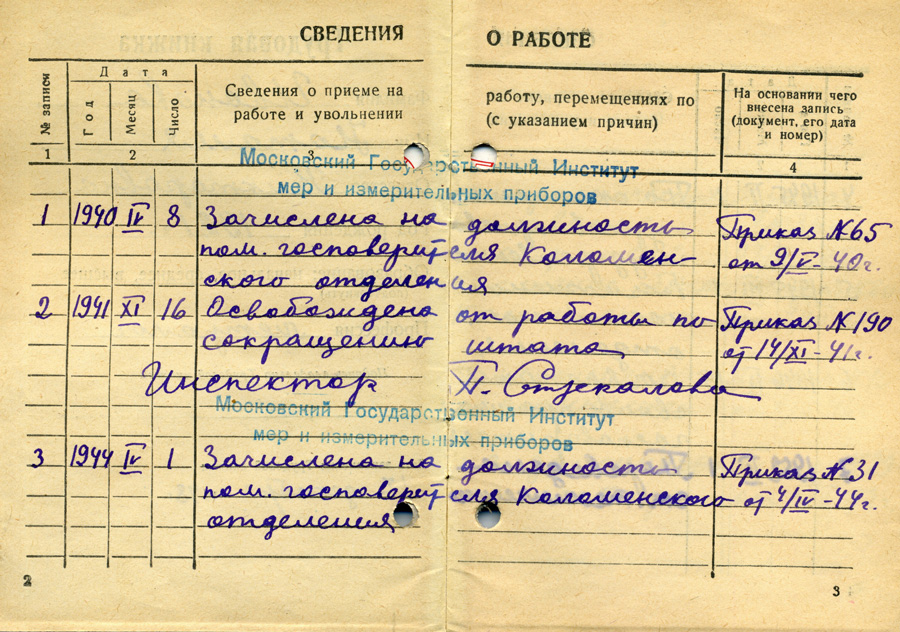 СВЕДЕНИЯ О РАБОТЕ
№ записи
Дата
Год
Месяц
Число
Сведения о приеме на работу, перемещениях по
работе и увольнении (с указанием причин)
На основании чего
внесена запись
(документ, его дата
и номер)
1 2 3 4
Московский Государственный Институт
мер и измерительных приборов
1 1940 IV 8 Зачислена на должность Приказ №65
пом. госповерителя Коломен- от 9/IV-40г.
ского отделения
2 1941 XI 16 Освобождена от работы по Приказ №190
сокращению штата от 14/XI-41г.
Инспектор П. Стукалова
Московский Государственный Институт
мер и измерительных приборов
3 1944 IV 1 Зачислена на должность Приказ №31
пом. госповерителя Коломенского от 4/IV-44г.
отделения
2 3